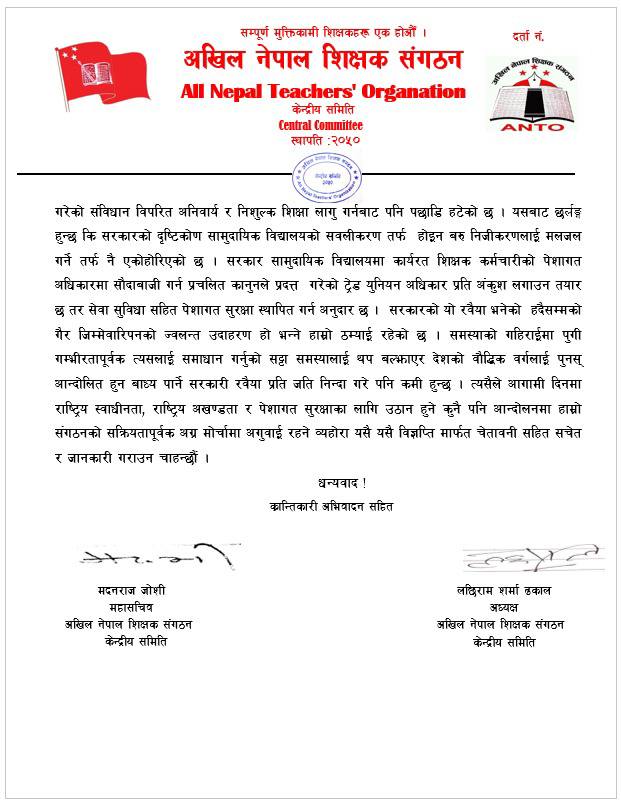 सम्पूर्ण मुक्तिकामी शिक्षकहरू एक होऔँ ।
दर्ता नं.
अखिल नेपाल शिक्षक संगठन
All Nepal Teachers' Organation
केन्द्रीय समिति
Central Committee
स्थापित :२०५०
अखिल नेपाल शिक्षक संगठन
ANTO
केन्द्रीय समिति
२०५०
All Nepal Teachers' Organization
गरेको संविधान विपरित अनिवार्य र निशुल्क शिक्षा लागु गर्नबाट पनि पछाडि हटेको छ । यसबाट छर्लङ्ग
हुन्छ कि सरकारको दृष्टिकोण सामुदायिक विद्यालयको सवलीकरण तर्फ होइन बरु निजीकरणलाई मलजल
गर्ने तर्फ नै एकोहोरिएको छ । सरकार सामुदायिक विद्यालयमा कार्यरत शिक्षक कर्मचारीको पेशागत
अधिकारमा सौदाबाजी गर्न प्रचलित कानुनले प्रदत्त गरेको ट्रेड युनियन अधिकार प्रति अंकुश लगाउन तयार
छ तर सेवा सुविधा सहित पेशागत सुरक्षा स्थापित गर्न अनुदार छ । सरकारको यो रवैया भनेको हदैसम्मको
गैर जिम्मेवारिपनको ज्वलन्त उदाहरण हो भन्ने हाम्रो ठम्याई रहेको छ । समस्याको गहिराईमा पुगी
गम्भीरतापूर्वक त्यसलाई समाधान गर्नुको सट्टा समस्यालाई थप बल्झाएर देशको वौद्धिक वर्गलाई पुनस्
आन्दोलित हुन बाध्य पार्ने सरकारी रवैया प्रति जति निन्दा गरे पनि कमी हुन्छ । त्यसैले आगामी दिनमा
राष्ट्रिय स्वाधीनता, राष्ट्रिय अखण्डता र पेशागत सुरक्षाका लागि उठान हुने कुनै पनि आन्दोलनमा हाम्रो
संगठनको सक्रियतापूर्वक अग्र मोर्चामा अगुवाई रहने व्यहोरा यसै यसै विज्ञप्ति मार्फत चेतावनी सहित सचेत
र जानकारी गराउन चाहन्छौं ।
धन्यवाद !
कान्तिकारी अभिवादन सहित
मदनराज जोशी
महासचिव
अखिल नेपाल शिक्षक संगठन
केन्द्रीय समिति
लछिराम शर्मा ढकाल
अध्यक्ष
अखिल नेपाल शिक्षक संगठन
केन्द्रीय समिति